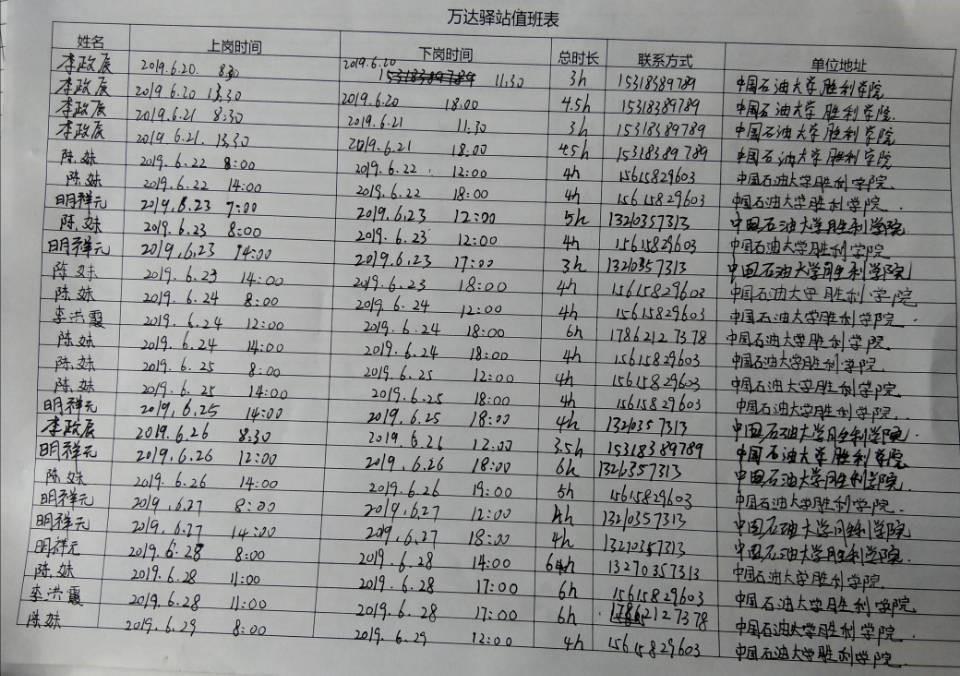 万达驿站值班表
姓名 上岗时间 下岗时间 总时长 联系方式 单位地址
李政辰 2019.6.20. 8:30 2019.6.20 11:30 3h 15318389789 中国石油大学胜利学院
李政辰 2019.6.20 13:30 2019.6.20 18:00 4.5h 15318389789 中国石油大学胜利学院.
李政辰 2019.6.21 8:30 2019.6.21 11:30 3h 15318389789 中国石油大学胜利学院
李政辰 2019.6.21. 13:30 2019.6.21 18:00 4.5h 15318389789 中国石油大学胜利学院
陈妹 2019.6.22 8:00 2019.6.22. 12:00 4h 15615829603 中国石油大学胜利学院.
陈妹 2019.6.22 14:00 2019.6.22 18:00 4h 15615829603 中国石油大学胜利学院.
明祥元 2019.6.23 7:00 2019.6.23 12:00 5h 13210357313 中国石油大学胜利学院
陈妹 2019.6.23 8:00 2019.6.23 12:00 4h 15615829603 中国石油大学胜利学院.
明祥元 2019.6.23 14:00 2019.6.23 17:00 3h 13210357313 中国石油大学胜利学院
陈妹 2019.6.23 14:00 2019.6.23 18:00 4h 15615829603 中国石油大学胜利学院
陈妹 2019.6.24 8:00 2019.6.24 12:00 4h 15615829603 中国石油大学胜利学院.
李洪霞 2019.6.24 12:00 2019.6.24 18:00 6h 17862127378 中国石油大学胜利学院
陈妹 2019.6.24 14:00 2019.6.24 18:00 4h 15615829603 中国石油大学胜利学院.
陈妹 2019.6.25 8:00 2019.6.25 12:00 4h 15615829603 中国石油大学胜利学院
陈妹 2019.6.25 14:00 2019.6.25 18:00 4h 15615829603 中国石油大学胜利学院.
明祥元 2019.6.25 14:00 2019.6.25 18:00 4h 13210357313 中国石油大学胜利学院.
李政辰 2019.6.26 8:30 2019.6.26 12:00 3.5h 15318389789 中国石油大学胜利学院
明祥元 2019.6.26 12:00 2019.6.26 18:00 6h 1326357313 中国石油大学胜利学院
陈妹 2019.6.26 14:00 2019.6.26 19:00 5h 15615829603 中国石油大学胜利学院.
明祥元 2019.6.27 8:00 2019.6.27 12:00 4h 13210357313 中国石油大学胜利学院
明祥元 2019.6.27 14:00 2019.6.27 18:00 4h 13210357313 中国石油大学胜利学院.
明祥元 2019.6.28 8:00 2019.6.28 14:00 6h 13270357313 中国石油大学胜利学院
陈妹 2019.6.28 11:00 2019.6.28 17:00 6h 15615829603 中国石油大学胜利学院
李洪霞 2019.6.28 11:00 2019.6.28 17:00 6h 17862127378 中国石油大学胜利学院.
陈妹 2019.6.29 8:00 2019.6.29 12:00 4h 15615829603 中国石油大学胜利学院.